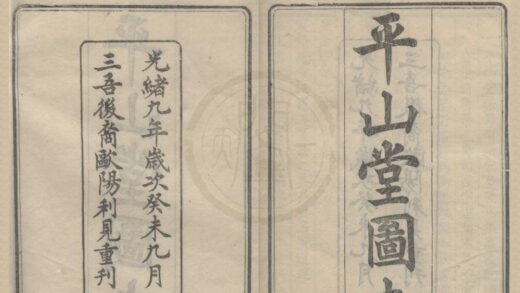 平山堂圖
光緒九年歲次癸未九月
三吾後裔歐陽利見重刊